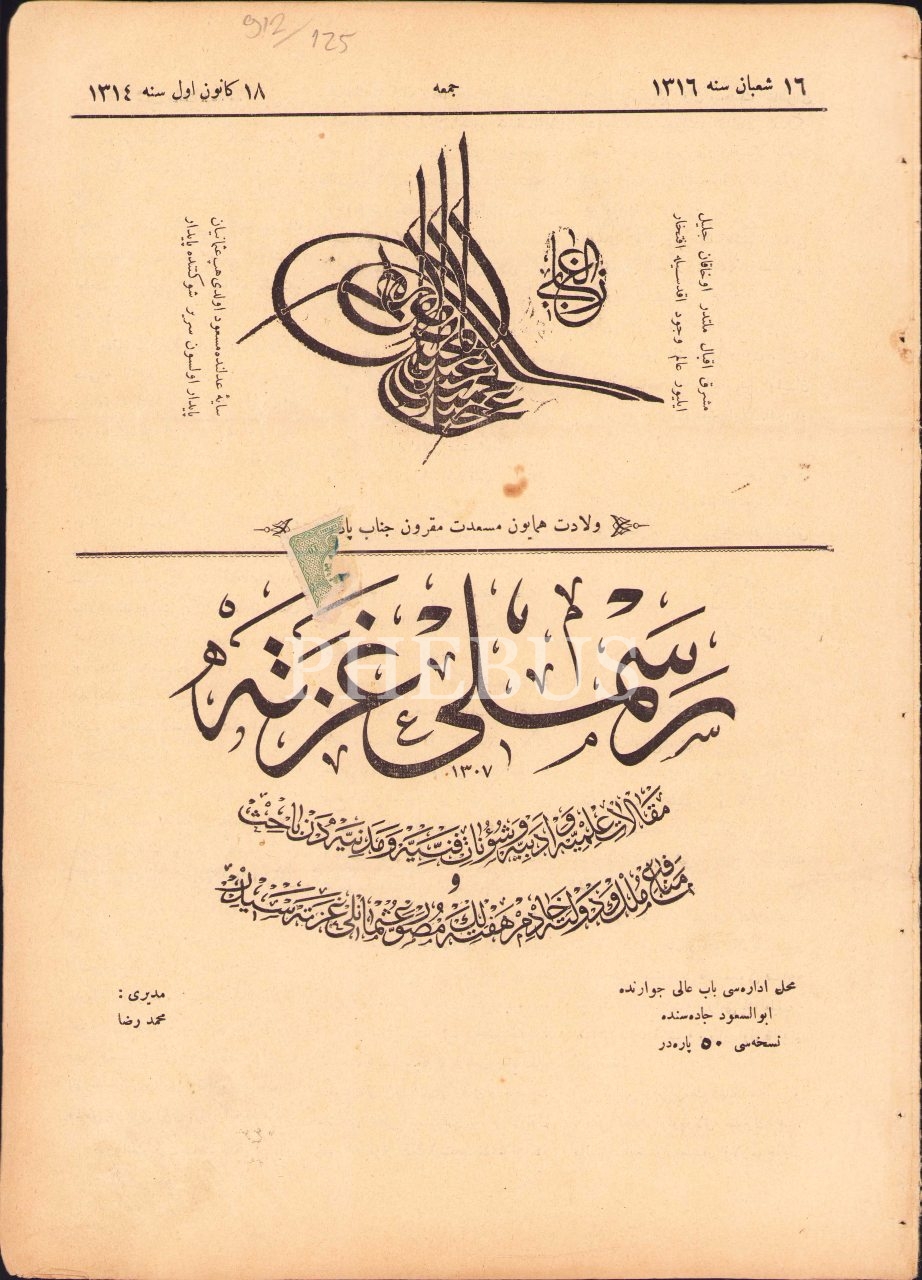 912/125
١٦ شعبان سنه ١٣١٦
جمعه
١٨ كانون اول سنه ١٣١٤
مشرق اقبال ملتدر اوخاقان جليل
ايليور عالم وجود اقدسيله افتخار
الغازى
سايۀ عدلنده مسعود اولدى هپ عثمانيان
پايدار اولسون سرير شوكتنده پايدار
ولادت همايون مسعدت مقرون جناب پاد
رسملى غزته
١٣٠٧
PHEBUS
مقالات علميه و ادبيه و شئونات فنيه و مدنيه دن باحث
و
منافع ملك و دولته خادم هفته لك مصور عثمانلى غزته سيدر
محل اداره‌سى باب عالى جوارنده
ابوالسعود جاده‌سنده
نسخه‌سى ٥٠ پاره‌در
مديرى :
محمد رضا